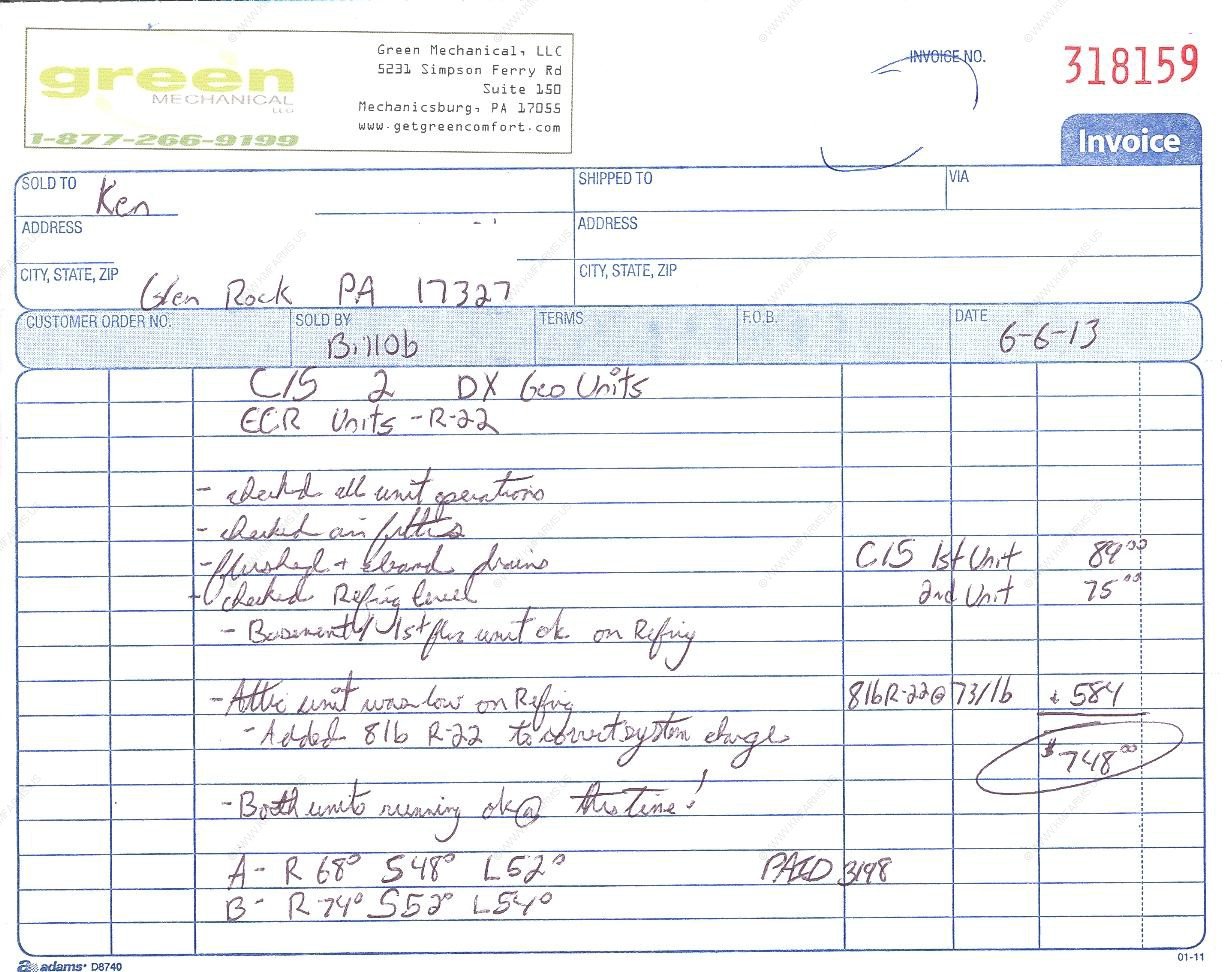 green
MECHANICAL
LLC
1-877-266-9199
Green Mechanical, LLC
5231 Simpson Ferry Rd
Suite 150
Mechanicsburg, PA 17055
www.getgreencomfort.com
INVOICE NO.
318159
Invoice
SOLD TO Ken
SHIPPED TO
VIA
ADDRESS
ADDRESS
CITY, STATE, ZIP Glen Rock PA 17327
CITY, STATE, ZIP
CUSTOMER ORDER NO.
SOLD BY Bill Ob
TERMS
F.O.B.
DATE 6-6-13
C/S 2 DX Geo Units
ECR Units - R-22
- checked all unit operations
- checked air filters
- flushed + cleaned drains C/S 1st Unit 89.00
- checked Refrig level 2nd Unit 75.00
- Basement / 1st flr unit ok on Refrig
- Attic unit was low on Refrig 8lb R-22 @ 73/lb + 584
- Added 8lb R-22 to correct system charge
$748.00
- Both units running ok @ this time!
A- R 68° S48° L52° PAID 3198
B- R-74° S52° L54°
adams D8740
01-11
© WWW.HMFARMS.US